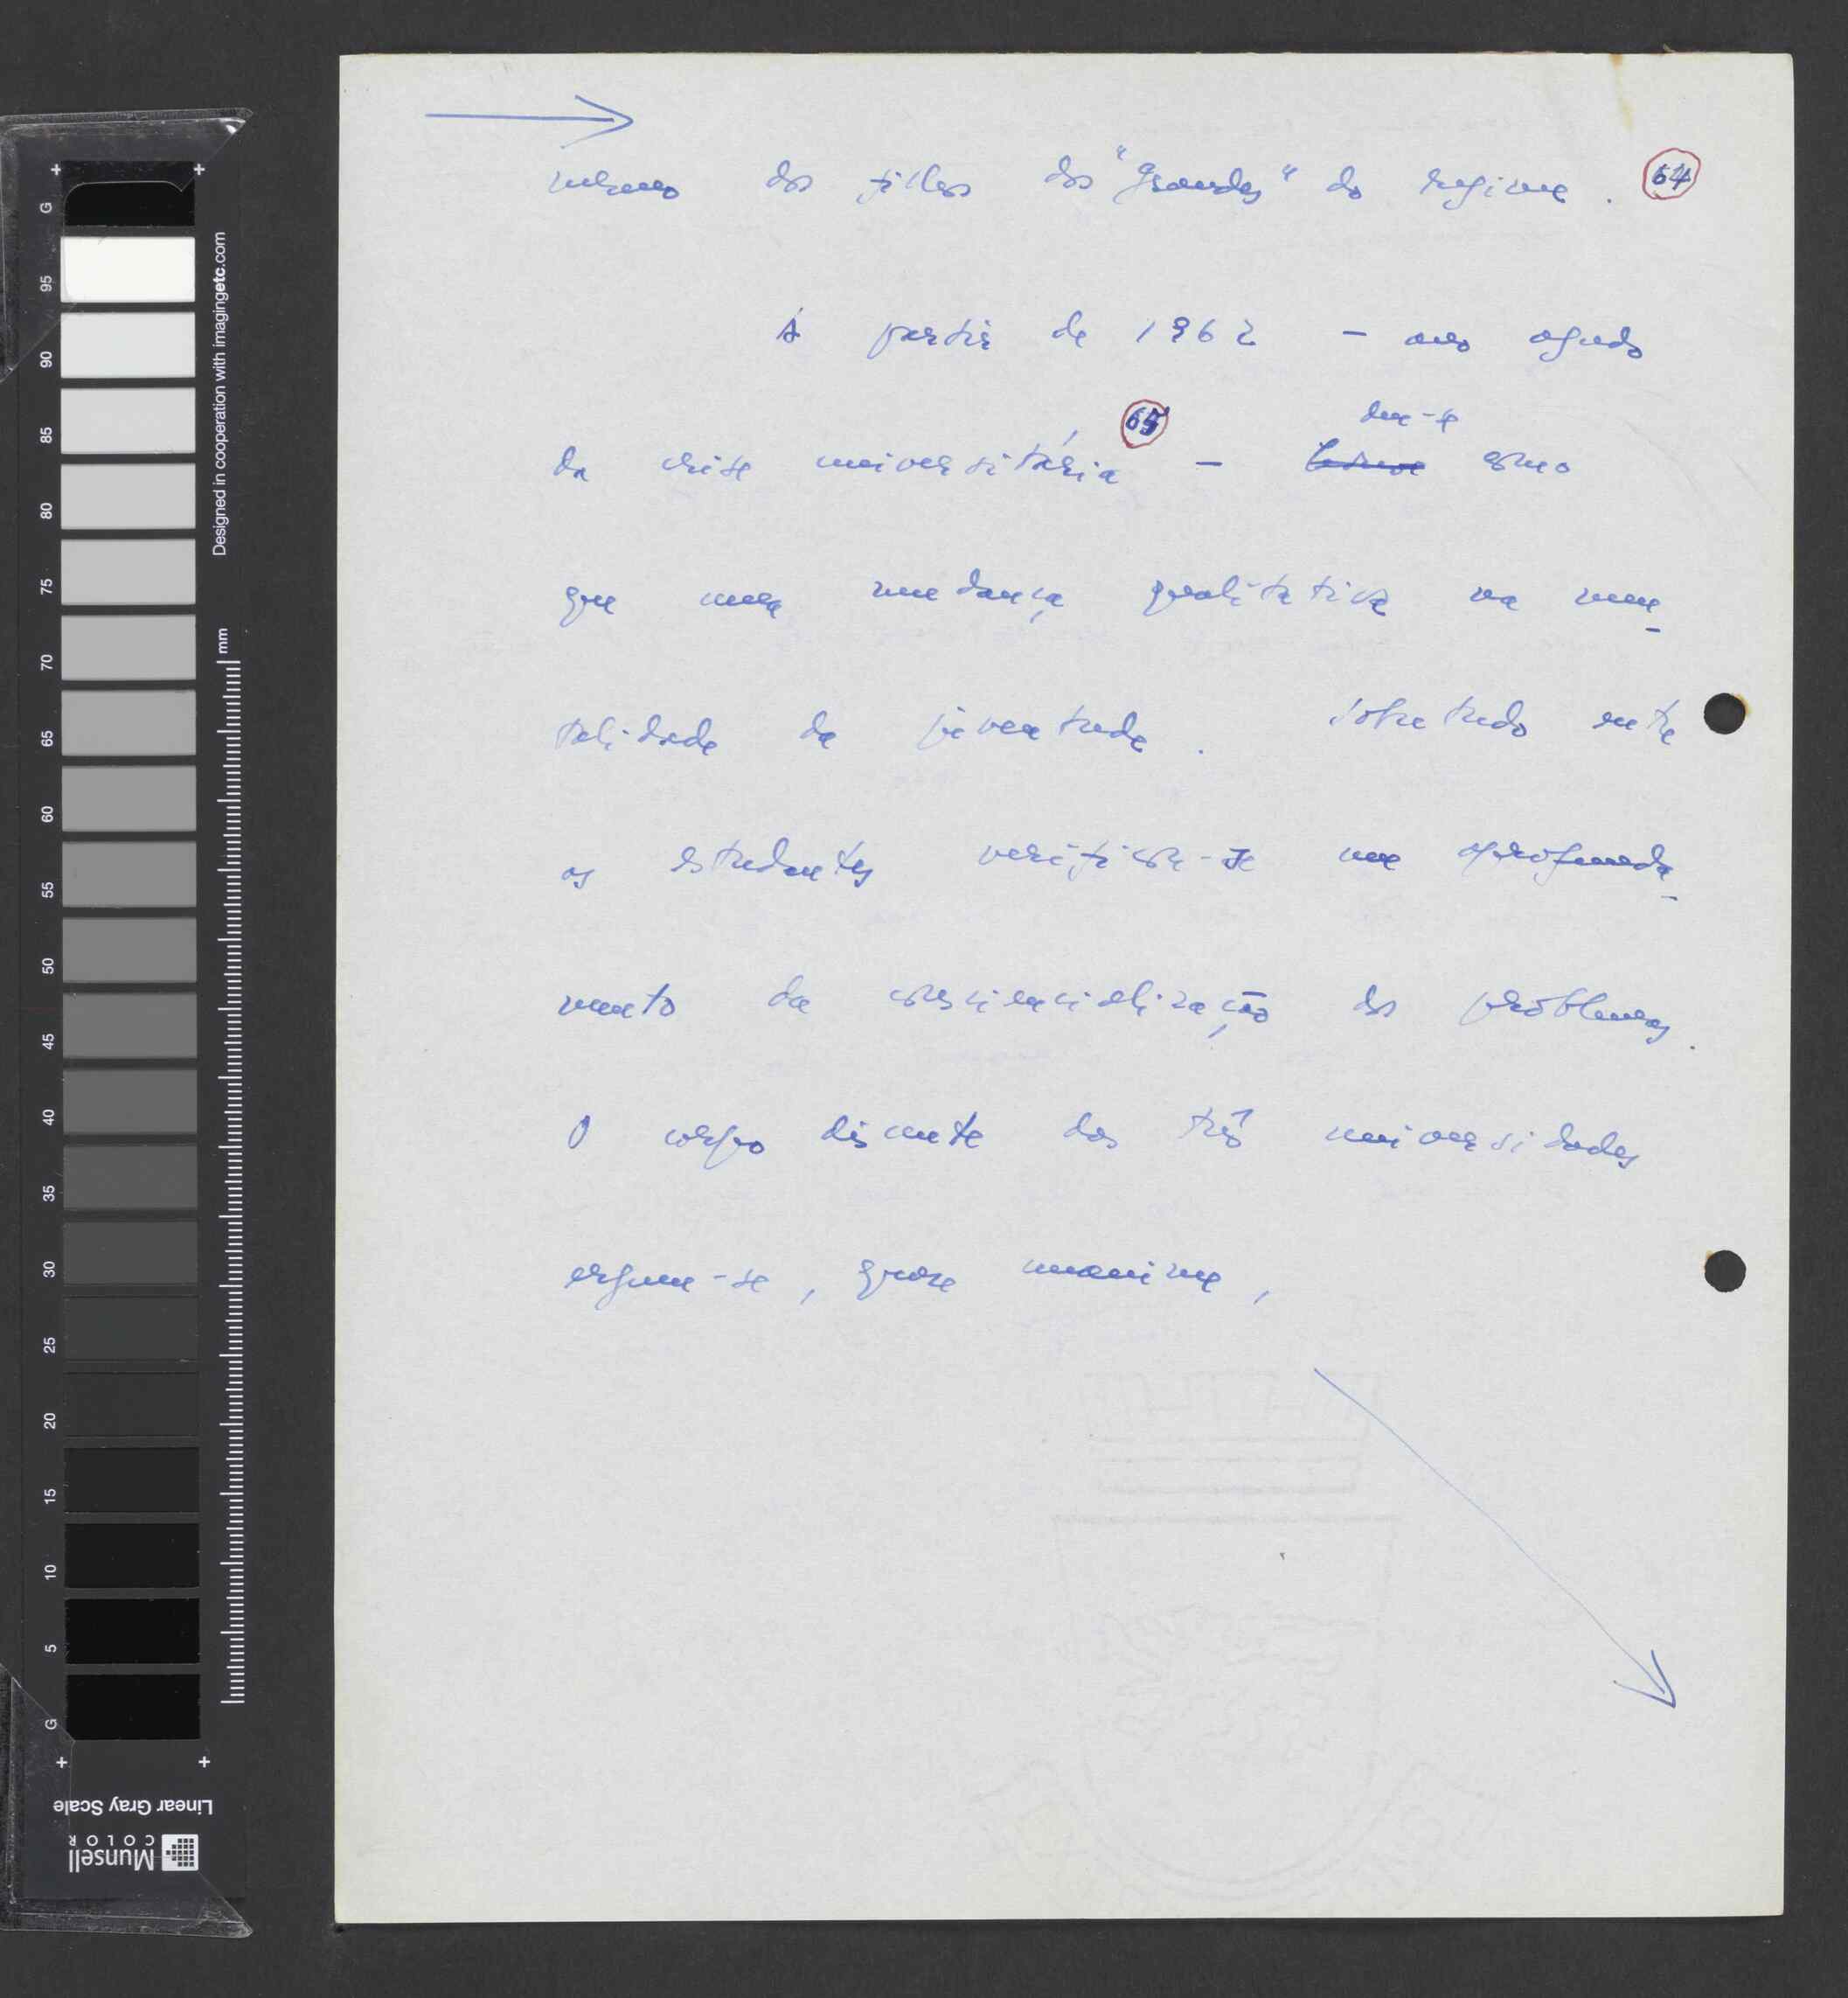 mesmo dos filhos dos "grandes" do regime. (64)
A partir de 1962 – ano agudo
deu-se
da crise universitária (65) – como
que uma mudança qualitativa na men-
talidade da juventude. Sobretudo entre
os estudantes verificou-se um aprofunda-
mento da consciencialização dos problemas.
O corpo discente das três universidades
ergueu-se, quase unânime,
G
95
90
85
80
75
70
65
60
55
50
45
40
35
30
25
20
15
10
5
G
Designed in cooperation with imagingetc.com
mm
Linear Gray Scale
Munsell
COLOR